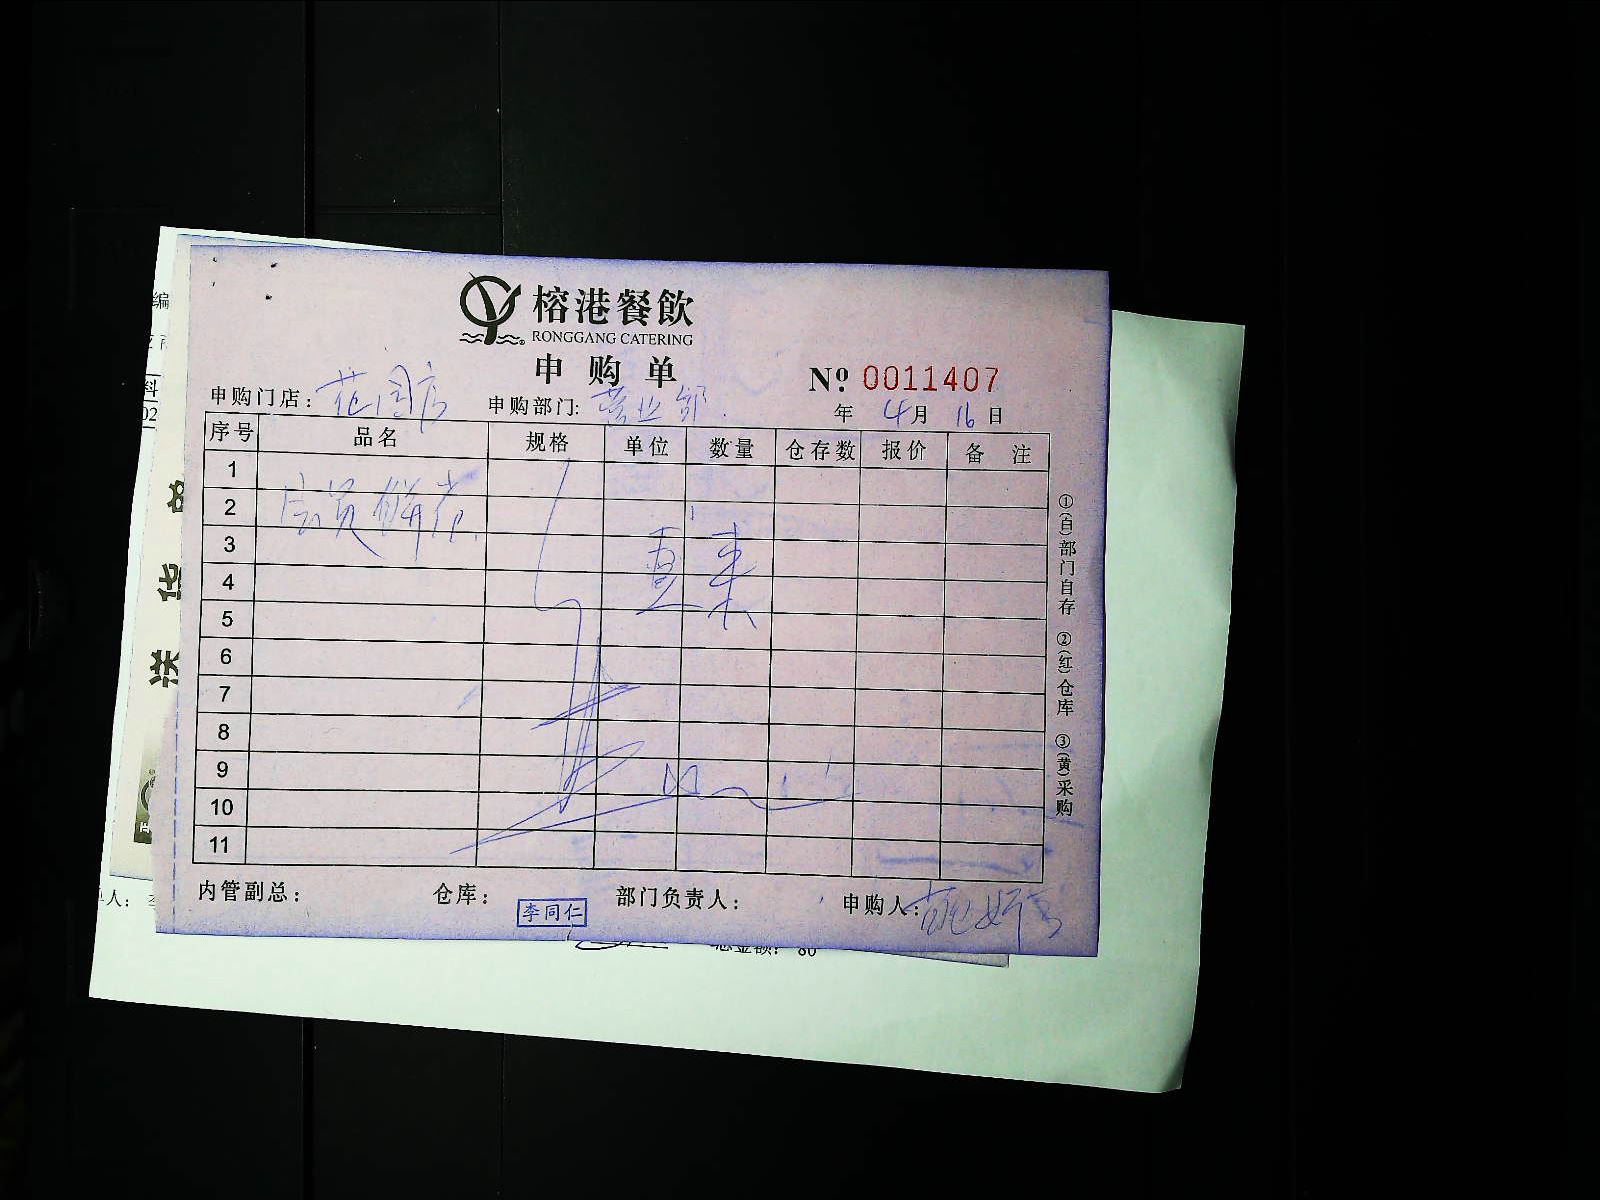 榕港餐飲
RONGGANG CATERING
申购单
Nº 0011407
申购门店： 花园店 申购部门: 营业部 年 4月 16日
序号 品名 规格 单位 数量 仓存数 报价 备注
1
2 会员
3
4
5
6
7
8
9
10
11
①(白)部门自存 ②(红)仓库 ③(黄)采购
内管副总： 仓库： 李同仁 部门负责人： 申购人：
总金额： 80
编
料
02